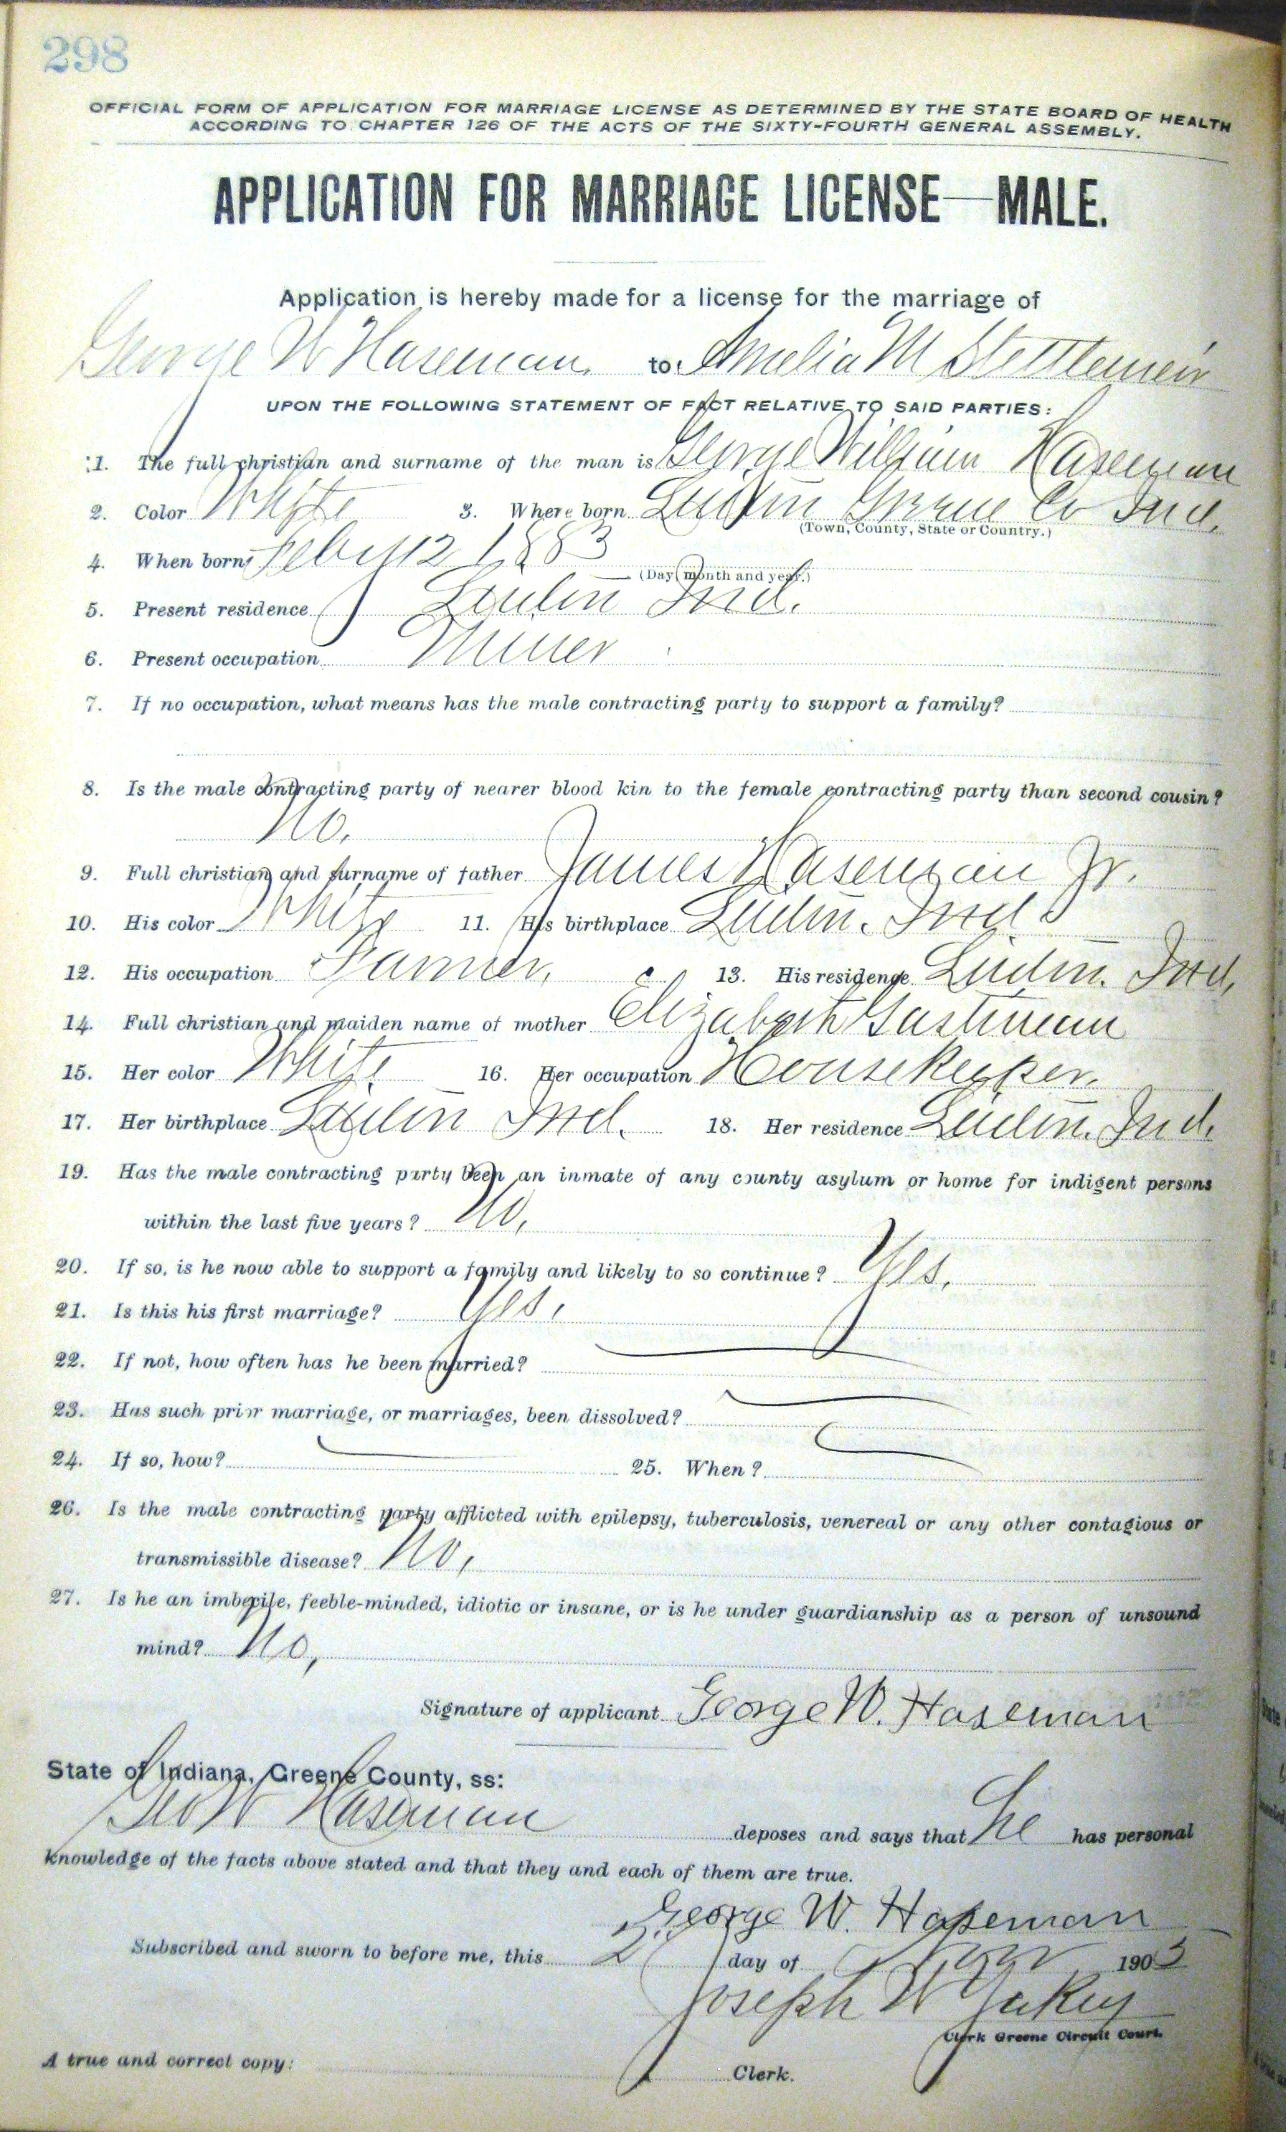 298
OFFICIAL FORM OF APPLICATION FOR MARRIAGE LICENSE AS DETERMINED BY THE STATE BOARD OF HEALTH
ACCORDING TO CHAPTER 126 OF THE ACTS OF THE SIXTY-FOURTH GENERAL ASSEMBLY.
APPLICATION FOR MARRIAGE LICENSE—MALE.
Application is hereby made for a license for the marriage of
George W Haseman to Amelia M
UPON THE FOLLOWING STATEMENT OF FACT RELATIVE TO SAID PARTIES:
1. The full christian and surname of the man is George William Haseman
2. Color White 3. Where born Linton Greene Co Ind.
(Town, County, State or Country.)
4. When born, Feby 12 1883
(Day month and year.)
5. Present residence Linton Ind.
6. Present occupation Miner
7. If no occupation, what means has the male contracting party to support a family?
8. Is the male contracting party of nearer blood kin to the female contracting party than second cousin?
No.
9. Full christian and surname of father James Haseman Jr.
10. His color White 11. His birthplace Linton. Ind
12. His occupation Farmer. 13. His residence Linton. Ind,
14. Full christian and maiden name of mother Elizabeth Gastineau
15. Her color White. 16. Her occupation Housekeeper.
17. Her birthplace Linton Ind. 18. Her residence Linton. Ind.
19. Has the male contracting party been an inmate of any county asylum or home for indigent persons
within the last five years? No,
20. If so, is he now able to support a family and likely to so continue? Yes.
21. Is this his first marriage? Yes,
22. If not, how often has he been married?
23. Has such prior marriage, or marriages, been dissolved?
24. If so, how? 25. When?
26. Is the male contracting party afflicted with epilepsy, tuberculosis, venereal or any other contagious or
transmissible disease? No,
27. Is he an imbecile, feeble-minded, idiotic or insane, or is he under guardianship as a person of unsound
mind? No,
Signature of applicant George W. Haseman
State of Indiana, Greene County, ss:
Geo W Haseman deposes and says that he has personal
knowledge of the facts above stated and that they and each of them are true.
George W. Haseman
Subscribed and sworn to before me, this 2 day of 1905
Joseph W Yakey
Clerk Greene Circuit Court.
A true and correct copy: Clerk.